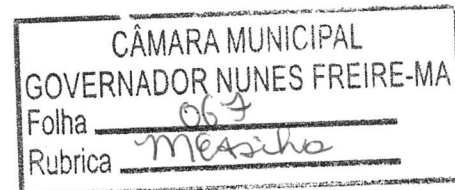 CÂMARA MUNICIPAL
GOVERNADOR NUNES FREIRE-MA
Folha 067
Rubrica